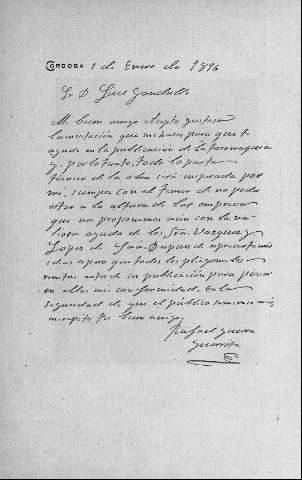 CORDOBA 1 de Enero de 1896
Sr. D. Luis Gandullo
Mi buen amigo: Acepto gustoso
la invitacion que me hace para que te
ayude en la publicacion de la tauromaquia
y, por lo tanto, toda la parte
técnica de la obra será inspirada por
mí, siempre con el temor de no poder
estar a la altura de las empresas
que nos proponemos aún con la va-
liosa ayuda de los Sres. Vazquez y
Lopez de Saá. Despues de expresarte mis
ideas espero que todos los pliegos me los
remitas antes de su publicación para poner
en ellos mi conformidad, en la
seguridad de que el público
Tu buen amigo
Rafael Guerra
Guerrita